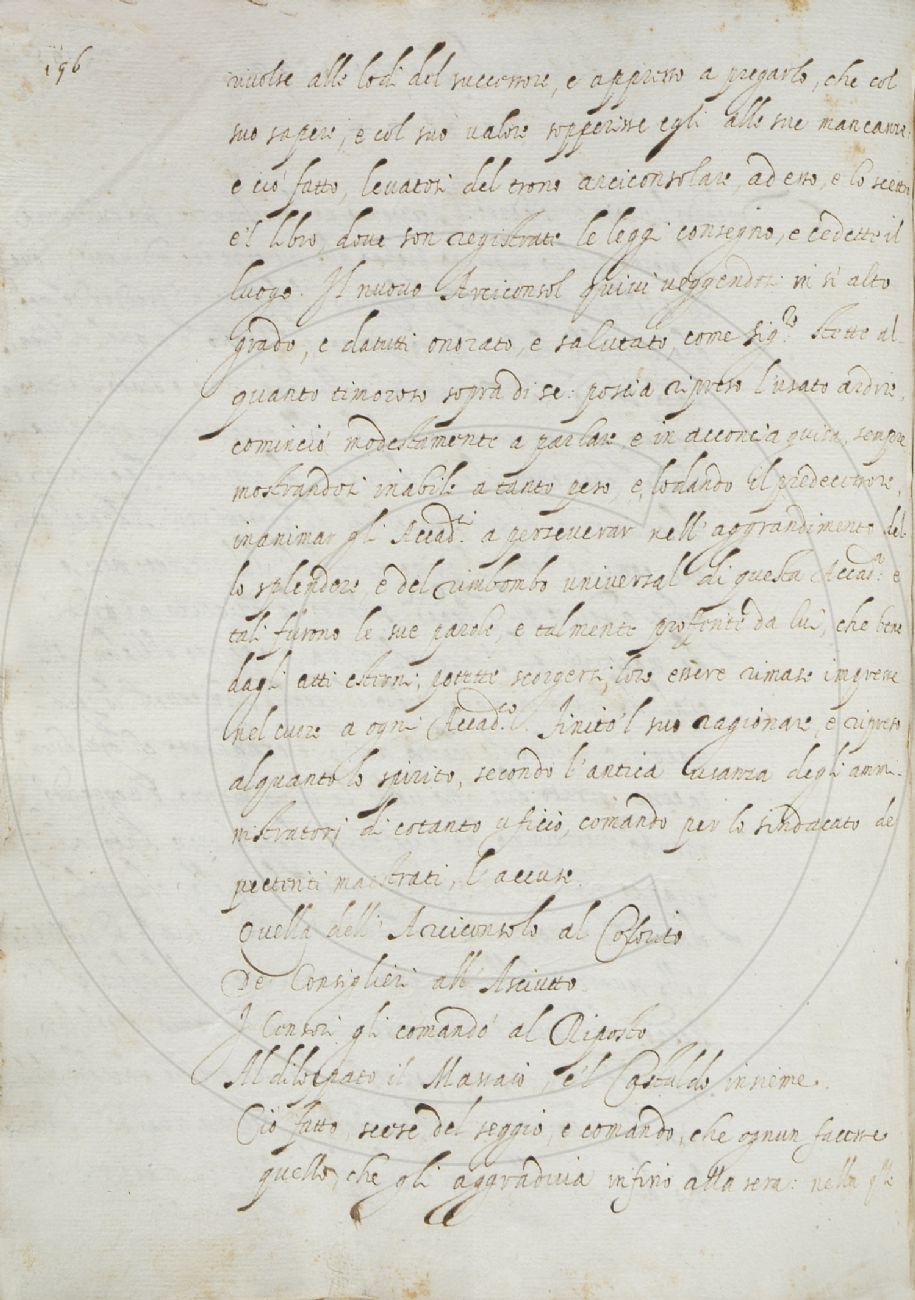 196
rivolse alle lodi del successore, e appresso a pregarlo, che col
suo sapere, e col suo valore sopperisse egli alle sue mancanze:
e ciò fatto, levatosi del trono arciconsolare, ad esso, e lo scettro
e 'l libro, dove son registrate le leggi consegnò, e cedette il
luogo. Il nuovo Arciconsol quivi veggendosi in sì alto
grado, e da tutti onorato, e salutato, come sig.re stette al-
quanto timoroso sopra di se: poscia ripreso l'usato ardire,
cominciò modestamente a parlare, e in acconcia guisa, sempre
mostrandosi inabile a tanto peso, e, lodando il predecessore,
inanimar gli Accad.ci a perseverar nell'aggrandimento del-
lo splendore, e del rimbombo universal di questa Accad.a: e
tali furono le sue parole, e talmente profferite da lui, che bene
dagli atti esterni, potette scorgersi, loro essere rimase impresse
nel cuore a ogni Accad.co. Finito 'l suo ragionare, e ripreso
alquanto lo spirito, secondo l'antica usanza degli ammi-
nistratori di cotanto uficio, comandò per lo sindacato de
pecteriti maestrati, l'accuse.
Quella dell'Arciconsolo al Colorito
De' Consiglieri all'Asciutto.
I Censori gli comandò al Riposto
Al dilospato il Massaio, e 'l Castaldo insieme.
Ciò fatto, scese del seggio, e comandò, che ognun facesse
quello, che gli aggradiva infino alla sera: nella qle